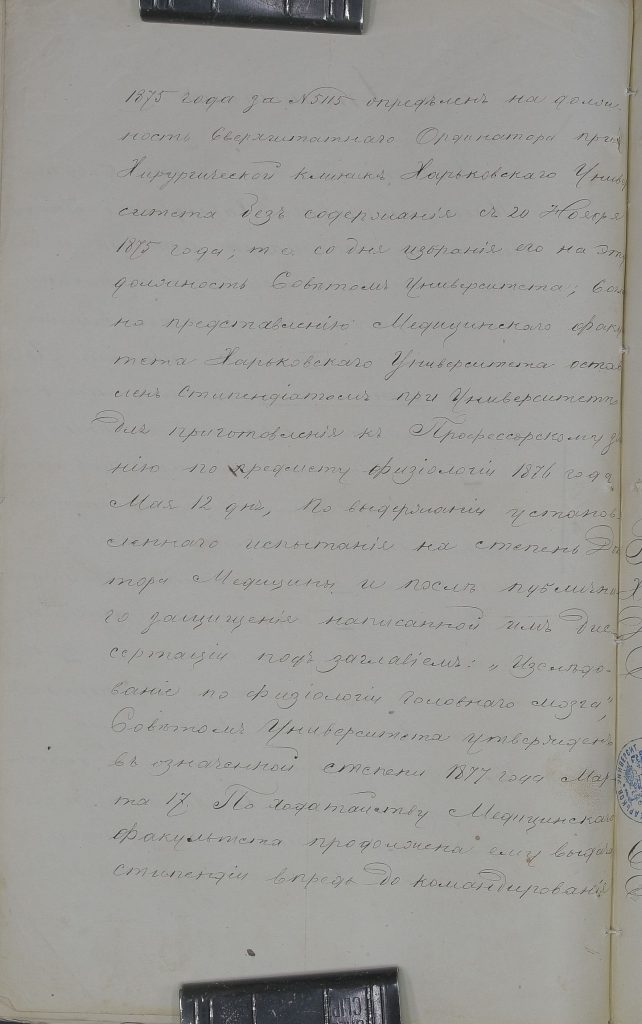 1875 года за №5115 опредѣленъ на долж-
ность Сверхштатнаго Ординатора при
Хирургической клиникѣ Харьковскаго Униве
ситета безъ содержанія съ 20 Ноября
1875 года; т. е. со дня избранія его на эту
должность Совѣтомъ Университета;
по представленію Медицинскаго факу
тета Харьковскаго Университета оста
ленъ стипендіатомъ при Университетѣ
для приготовленія къ Профессорскому зв
нію по предмету физіологіи 1876 года
Мая 12 дня, по выдержаніи установ-
леннаго испытанія на степень Док
тора Медицины и послѣ публична
го защищенія написанной имъ Дис-
сертаціи подъ заглавіемъ: „Изслѣдо-
ваніе по физіологіи головнаго мозга“,
Совѣтомъ Университета утвержденъ
въ означенной степени 1877 года Мар-
та 17. По ходатайству Медицинскаго
факультета продолжена ему выдача
стипендіи впредь до командированія